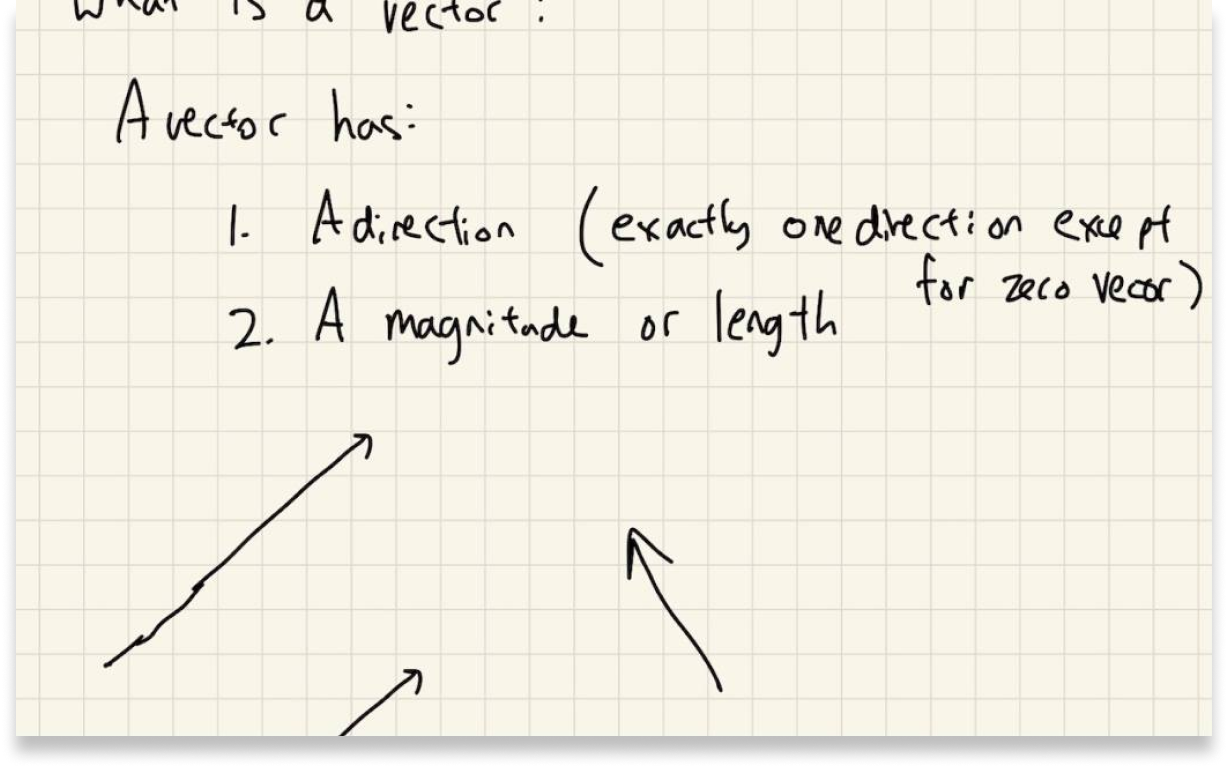 What is a vector?
A vector has:
1. A direction (exactly one direction except
for zero vecor)
2. A magnitude or length